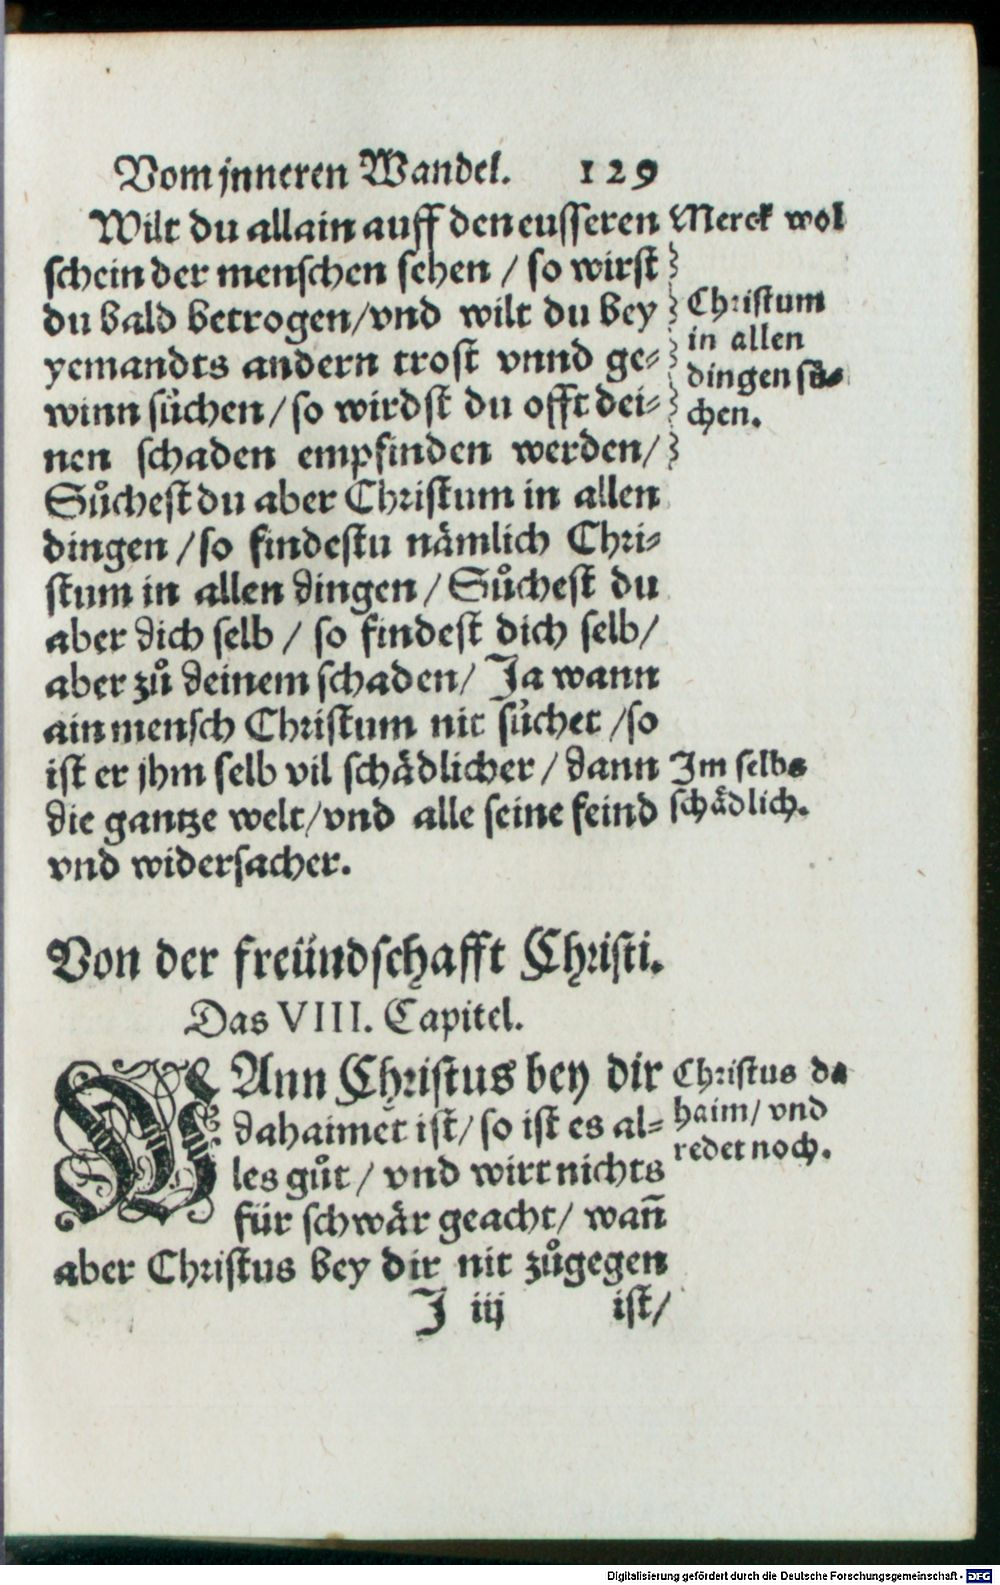 Vom jnneren Wandel. 129
Wilt du allain auff den eusseren
schein der menschen sehen / so wirst
du bald betrogen/vnd wilt du bey
yemandts andern trost vnnd ge⸗
winn suͤchen / so wirdst du offt dei⸗
nen schaden empfinden werden/
Suͦchest du aber Christum in allen
dingen / so findestu nämlich Chri⸗
stum in allen dingen / Suͦchest du
aber dich selb / so findest dich selb/
aber zuͦ deinem schaden/ Ja wann
ain mensch Christum nit suͤchet / so
ist er jhm selb vil schädlicher / dann
die gantze welt/vnd alle seine feind
vnd widersacher.
Merck wol
Christum
in allen
dingen suͤ⸗
chen.
Im selbs
schädlich.
Von der freündschafft Christi.
Das VIII. Capitel.
WAnn Christus bey dir
dahaimet ist/ so ist es al⸗
les guͦt / vnd wirt nichts
für schwär geacht/ wañ
aber Christus bey dir nit zuͦgegen
Christus da
haim/ vnd
redet noch.
J iij ist/
Digitalisierung gefördert durch die Deutsche Forschungsgemeinschaft - DFG